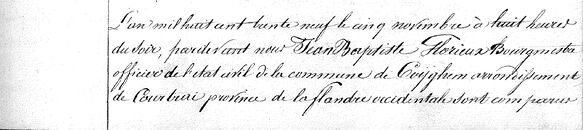 L'an mil huit cent trente neuf le cinq novembre à huit heures
du soir, pardevant nous Jean Baptiste Florieux Bourgmestre
officier de l'état civil de la commune de Coijghem arrondissement
de Courtrai province de la flandre occidentale sont comparus